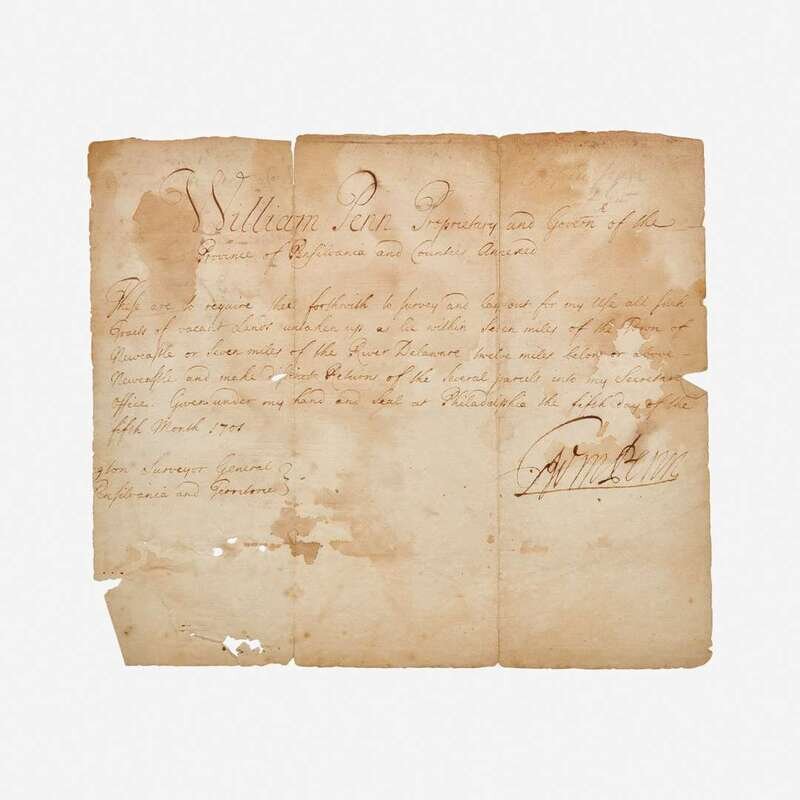 William Penn Proprietary and Govern.r of the
Province of Pensilvania and Counties Annexed
These are to require thee forthwith to survey and lay out for my Use all such
tracts of vacant Lands untaken up as lie within Seven miles of the Town of
Newcastle or Seven miles of the River Delaware twelve miles below or above
Newcastle and make distinct Returns of the several parcels into my Secretar
office. Given under my hand and seal at Philadelphia the fifth day of the
fifth Month 1701
Wm Penn
gton Surveyor General
Pensilvania and Territories